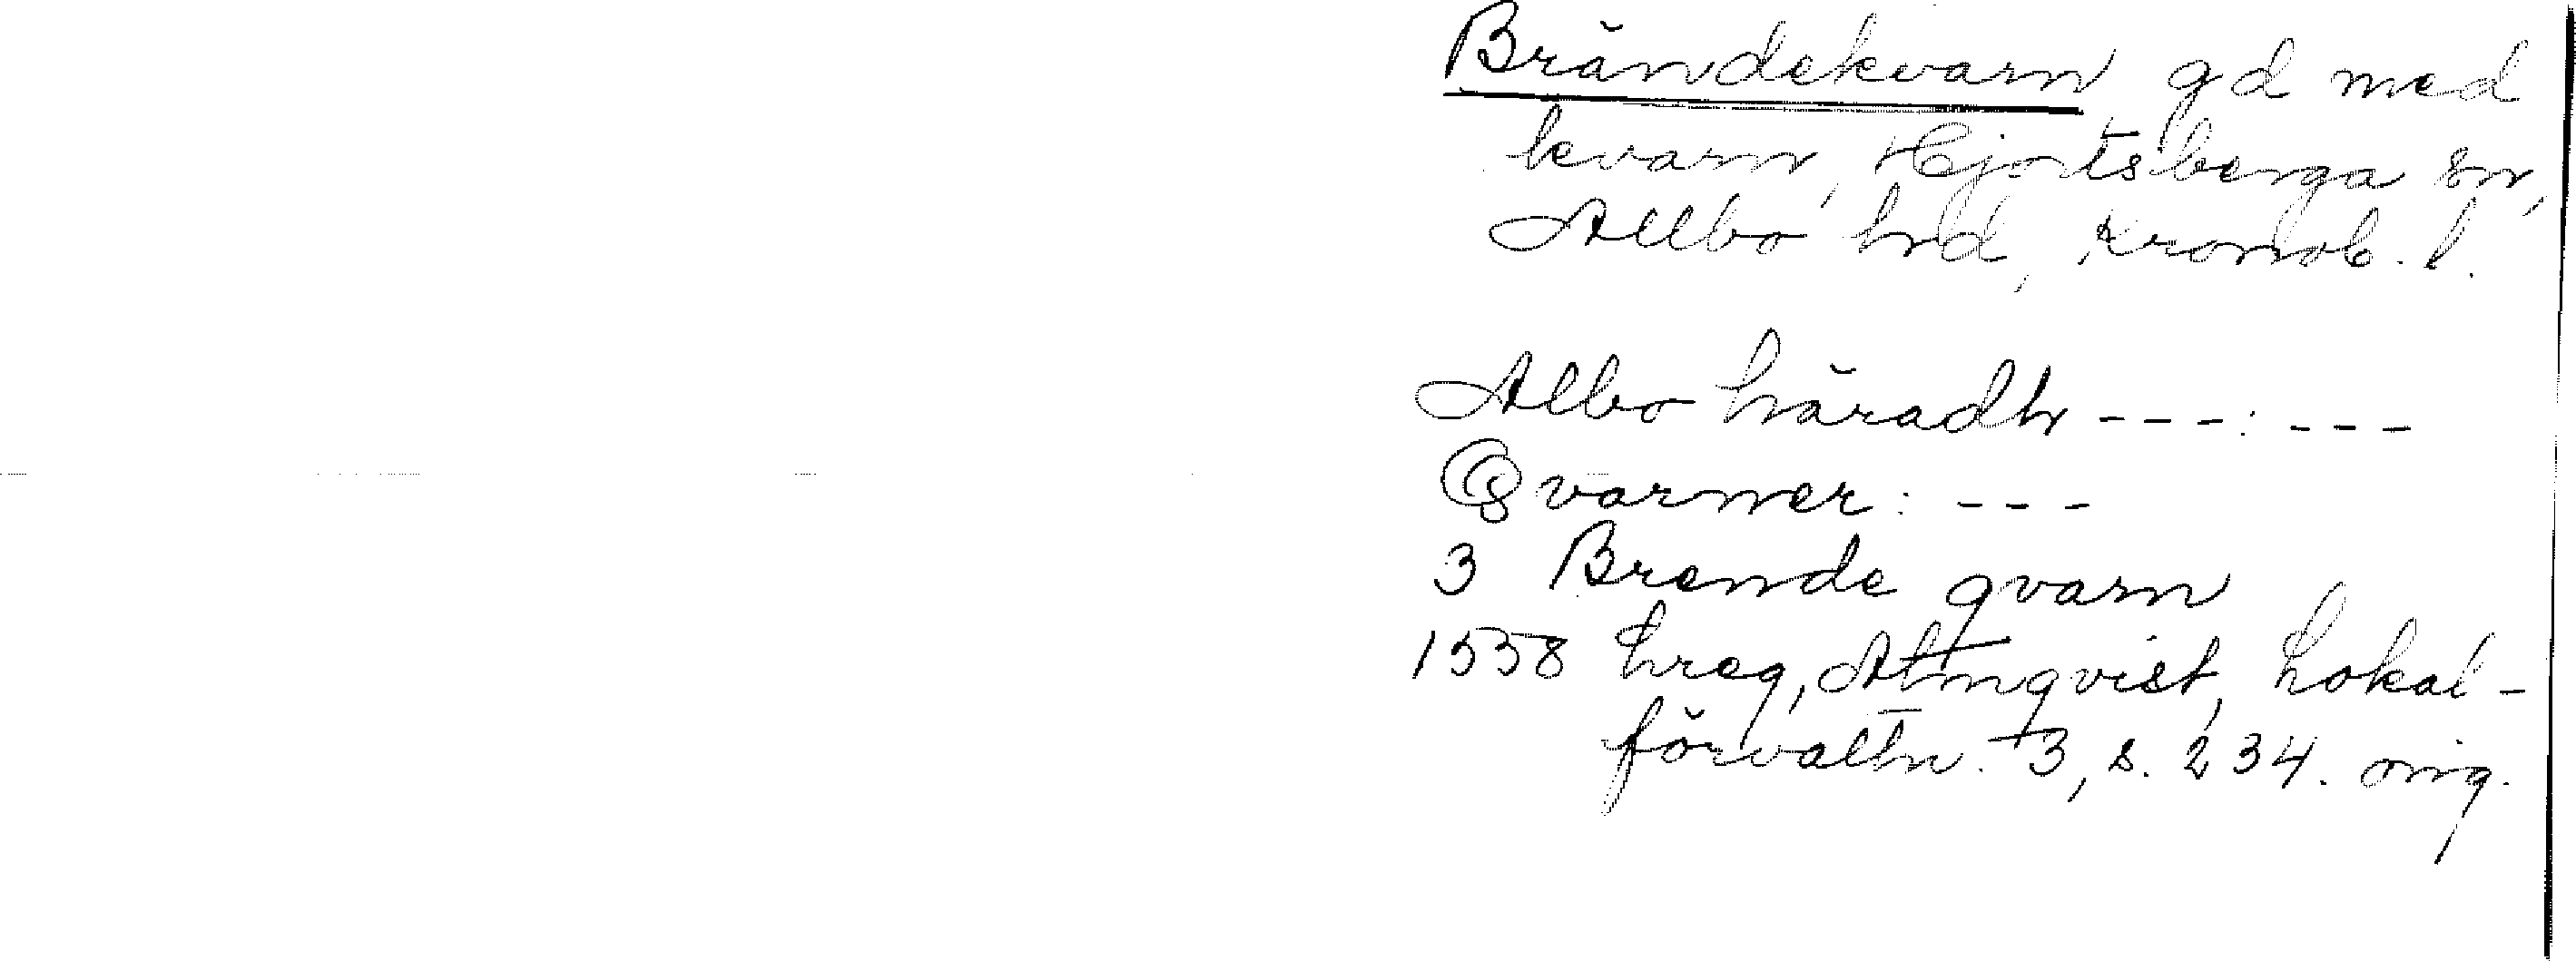 Brändekvarn gd med
kvarn, Hjortsberga sn,
Allbo hd, Kronob. l.
Albo häradh ---: ---
Qvarner: ---
3 Brende qvarn
1558 hreg, Almqvist, Lokal-
förvaltn. 3, s. 234. orig.